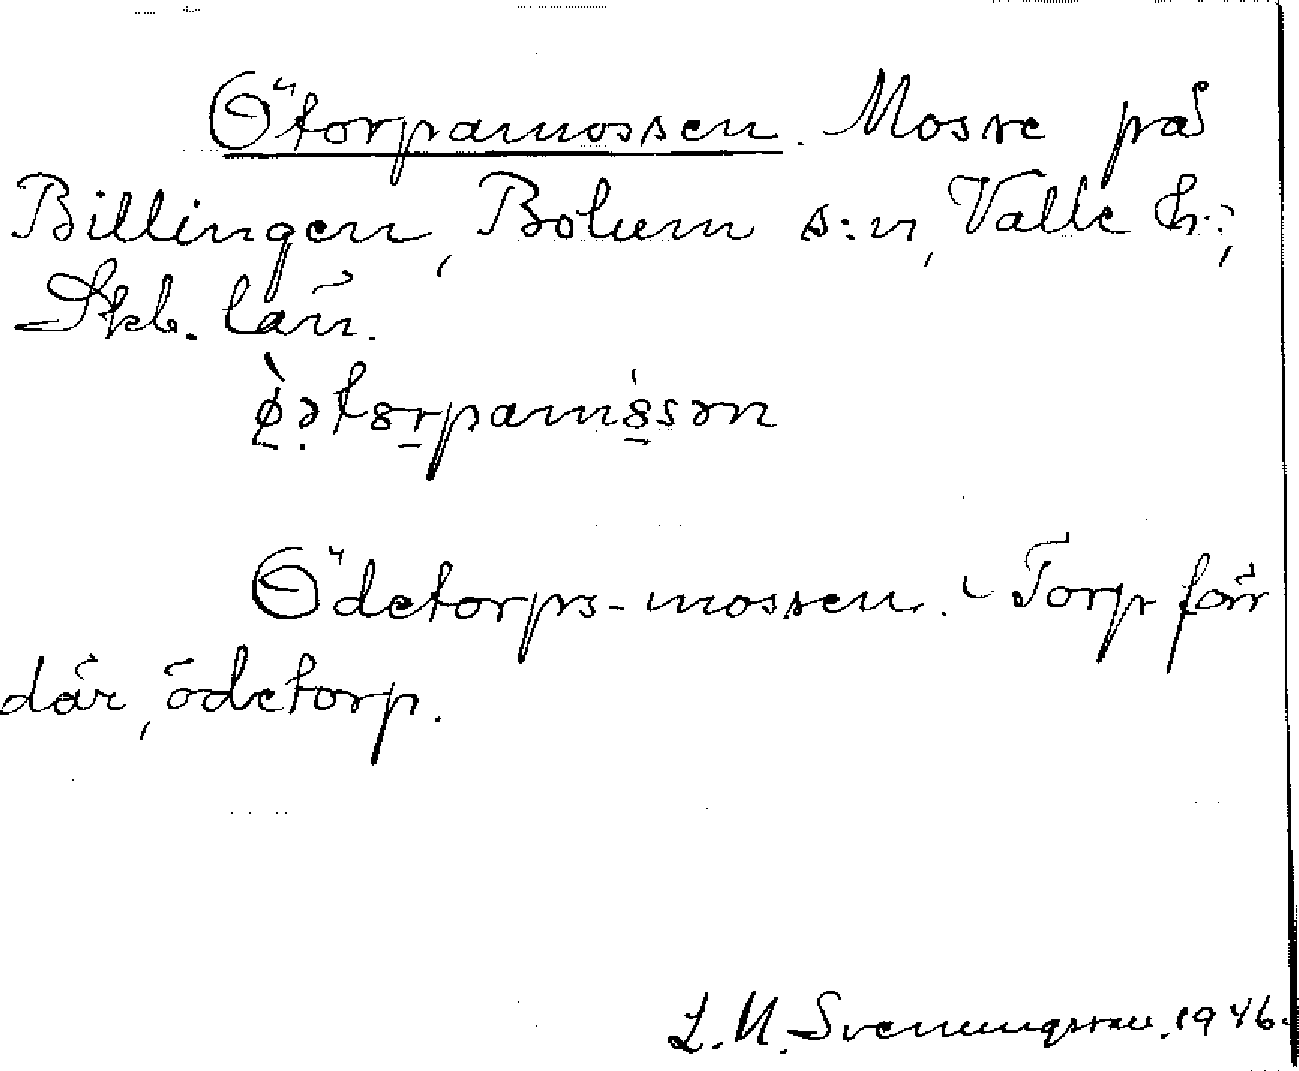 Ötorpamossen. Mosse på
Billingen, Bolum s:n, Valle h:,
Skb. län.
ø̀ətȣrpamȣ́sən
Ödetorps-mossen. - Torp förr
där, ödetorp.
L. M. Svenungsson. 1946.